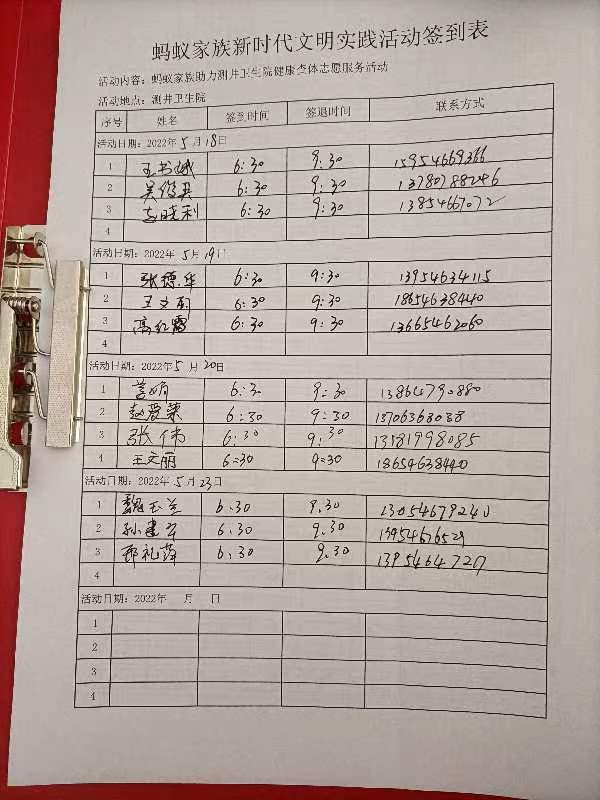 蚂蚁家族新时代文明实践活动签到表
活动内容：蚂蚁家族助力测井卫生院健康查体志愿服务活动
活动地点：测井卫生院
序号 姓名 签到时间 签退时间 联系方式
活动日期：2022年5月18日
1 王书娥 6:30 9:30 15954669366
2 吴俊英 6:30 9:30 13780788246
3 晓利 6:30 9:30 13854667072
4
活动日期：2022年5月19日
1 张德华 6:30 9:30 13954634115
2 王文丽 6:30 9:30 18654638440
3 高红霞 6:30 9:30 13665462060
4
活动日期：2022年5月20日
1 6:30 9:30 13864790880
2 赵爱荣 6:30 9:30 15706368038
3 张伟 6:30 9:30 13181998085
4 王文丽 6:30 9:30 18654638440
活动日期：2022年5月23日
1 魏玉兰 6.30 9.30 13054679240
2 孙建军 6.30 9.30 13954676529
3 郭礼萍 6.30 9.30
4
活动日期：2022年 月 日
1
2
3
4